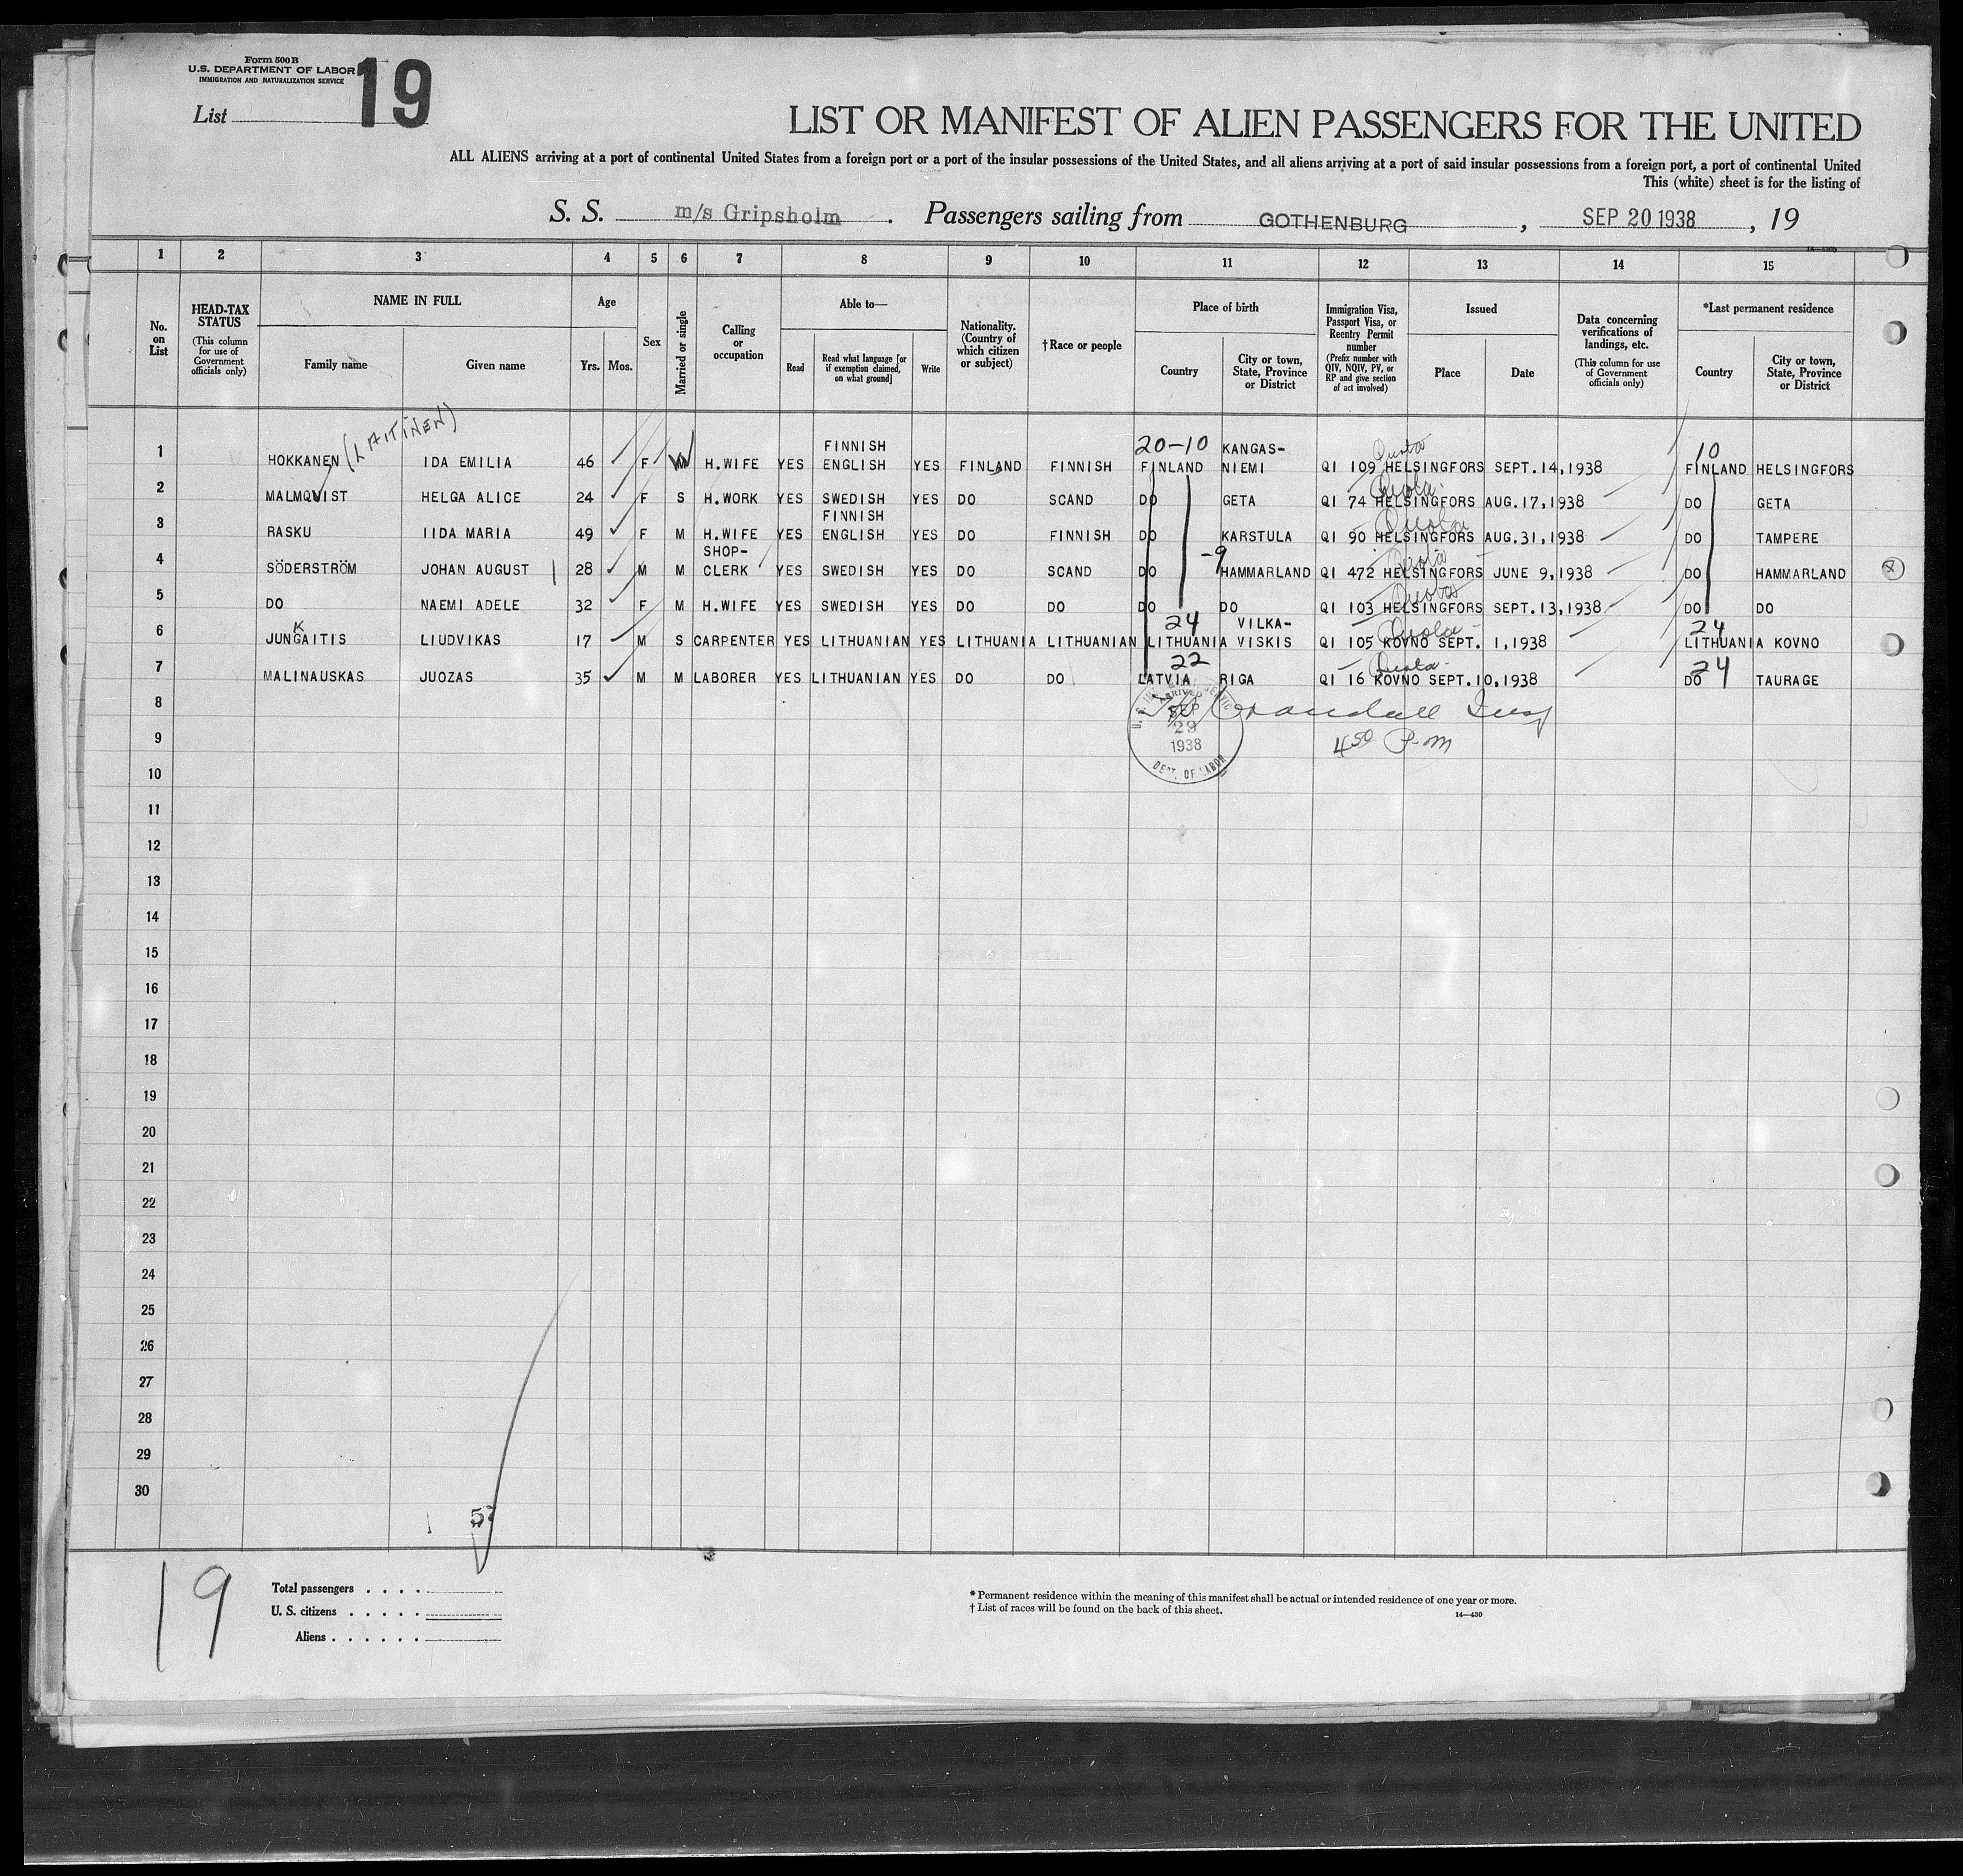 Form 500 B
U.S. DEPARTMENT OF LABOR
IMMIGRATION AND NATURALIZATION SERVICE
List 19
LIST OR MANIFEST OF ALIEN PASSENGERS FOR THE UNITED
ALL ALIENS arriving at a port of continental United States from a foreign port or a port of the insular possessions of the United States, and all aliens arriving at a port of said insular possessions from a foreign port, a port of continental United
This (white) sheet is for the listing of
S. S. m/s Gripsholm . Passengers sailing from GOTHENBURG , SEP 20 1938 , 19
1 2 3 4 5 6 7 8 9 10 11 12 13 14 15
No. on List
HEAD-TAX STATUS (This column for use of Government officials only)
NAME IN FULL
Family name Given name
Age
Yrs. Mos.
Sex
Married or single
Calling or occupation
Able to—
Read Read what language [or if exemption claimed, on what ground] Write
Nationality. (Country of which citizen or subject)
†Race or people
Place of birth
Country City or town, State, Province or District
Immigration Visa, Passport Visa, or Reentry Permit number (Prefix number with QIV, NQIV, PV, or RP and give section of act involved)
Issued
Place Date
Data concerning verifications of landings, etc. (This column for use of Government officials only)
*Last permanent residence
Country City or town, State, Province or District
(LAITINEN)
FINNISH 20-10 KANGAS- Quota 10
1 HOKKANEN IDA EMILIA 46 F M H.WIFE YES ENGLISH YES FINLAND FINNISH FINLAND NIEMI QI 109 HELSINGFORS SEPT.14,1938 FINLAND HELSINGFORS
Quota
2 MALMQVIST HELGA ALICE 24 F S H.WORK YES SWEDISH YES DO SCAND DO GETA QI 74 HELSINGFORS AUG.17,1938 DO GETA
FINNISH Quota
3 RASKU IIDA MARIA 49 F M H.WIFE YES ENGLISH YES DO FINNISH DO KARSTULA QI 90 HELSINGFORS AUG.31,1938 DO TAMPERE
SHOP- -9 Quota
4 SÖDERSTRÖM JOHAN AUGUST 28 M M CLERK YES SWEDISH YES DO SCAND DO HAMMARLAND QI 472 HELSINGFORS JUNE 9,1938 DO HAMMARLAND
Quota
5 DO NAEMI ADELE 32 F M H.WIFE YES SWEDISH YES DO DO DO DO QI 103 HELSINGFORS SEPT.13,1938 DO DO
K 24 VILKA- Quota 24
6 JUNGAITIS LIUDVIKAS 17 M S CARPENTER YES LITHUANIAN YES LITHUANIA LITHUANIAN LITHUANIA VISKIS QI 105 KOVNO SEPT. 1,1938 LITHUANIA KOVNO
22 Quota 24
7 MALINAUSKAS JUOZAS 35 M M LABORER YES LITHUANIAN YES DO DO LATVIA RIGA QI 16 KOVNO SEPT.10,1938 DO TAURAGE
8
ARRIVED SEP 29 1938 DEPT. OF LABOR
Crandall Insp
4 50 P-m
9
10
11
12
13
14
15
16
17
18
19
20
21
22
23
24
25
26
27
28
29
30
19
Total passengers . . . .
U. S. citizens . . . . .
Aliens . . . . . .
* Permanent residence within the meaning of this manifest shall be actual or intended residence of one year or more.
† List of races will be found on the back of this sheet.
14—430